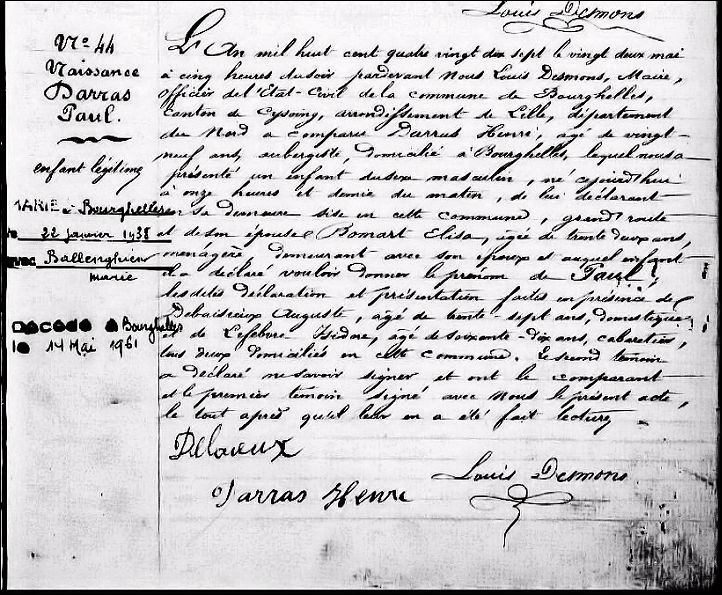 Louis Desmons
N° 44
Naissance
Darras
Paul.
enfant légitime
MARIÉ à Bourghelles
le 22 janvier 1938
avec Ballenghien
marie
DECEDE à Bourghelles
le 14 Mai 1961
L'An mil huit cent quatre vingt dix sept le vingt deux mai
à cinq heures du soir pardevant Nous Louis Desmons, Maire,
officier de l'Etat-Civil de la commune de Bourghelles,
Canton de Cysoing, arrondissement de Lille, département
du Nord a comparu Darras Henri, âgé de vingt-
neuf ans, aubergiste, domicilié à Bourghelles, lequel nous a
présenté un enfant du sexe masculin, né cejourd'hui
à onze heures et demie du matin, de lui déclarant
en sa demeure sise en cette commune, grand route
et de son épouse Bomart Elisa, âgée de trente deux ans,
ménagère, demeurant avec son époux et auquel enfant
il a déclaré vouloir donner le prénom de Paul;
lesdites déclaration et présentation faites en présence de
Debaisieux Auguste, âgé de trente-sept ans, domestique
et de Lefebvre Isidore, âgé de soixante-dix ans, cabaretier,
tous deux domiciliés en cette commune. Le second témoin
a déclaré ne savoir signer et ont le comparant
et le premier témoin signé avec Nous le présent acte,
le tout après qu'il leur en a été fait lecture
Darras Henri
Louis Desmons